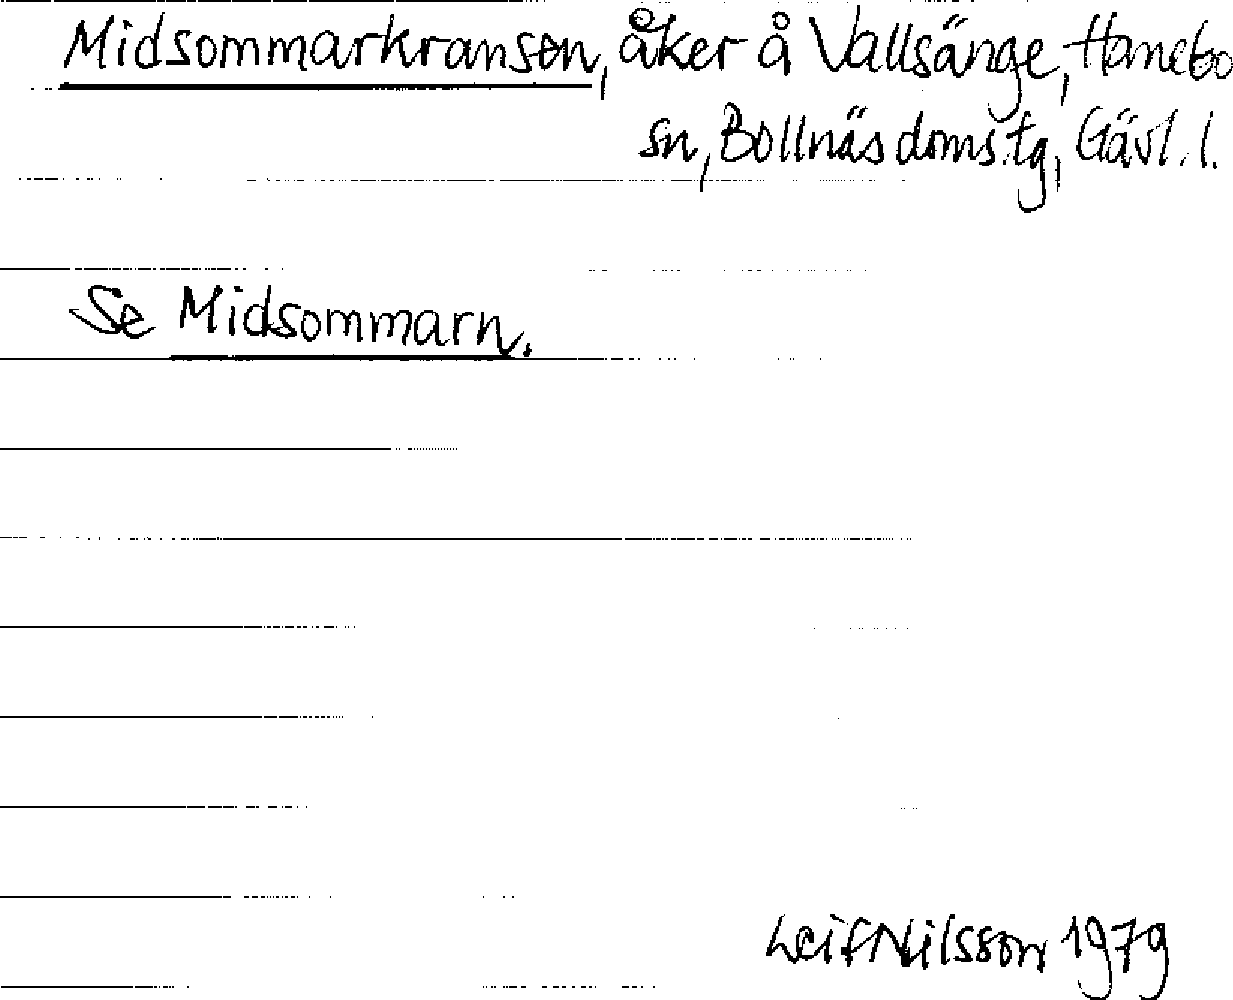 Midsommarkransen, åker å Vallsänge, Hanebo
sn, Bollnäs doms.tg, Gävl. l.
Se Midsommarn.
Leif Nilsson 1979